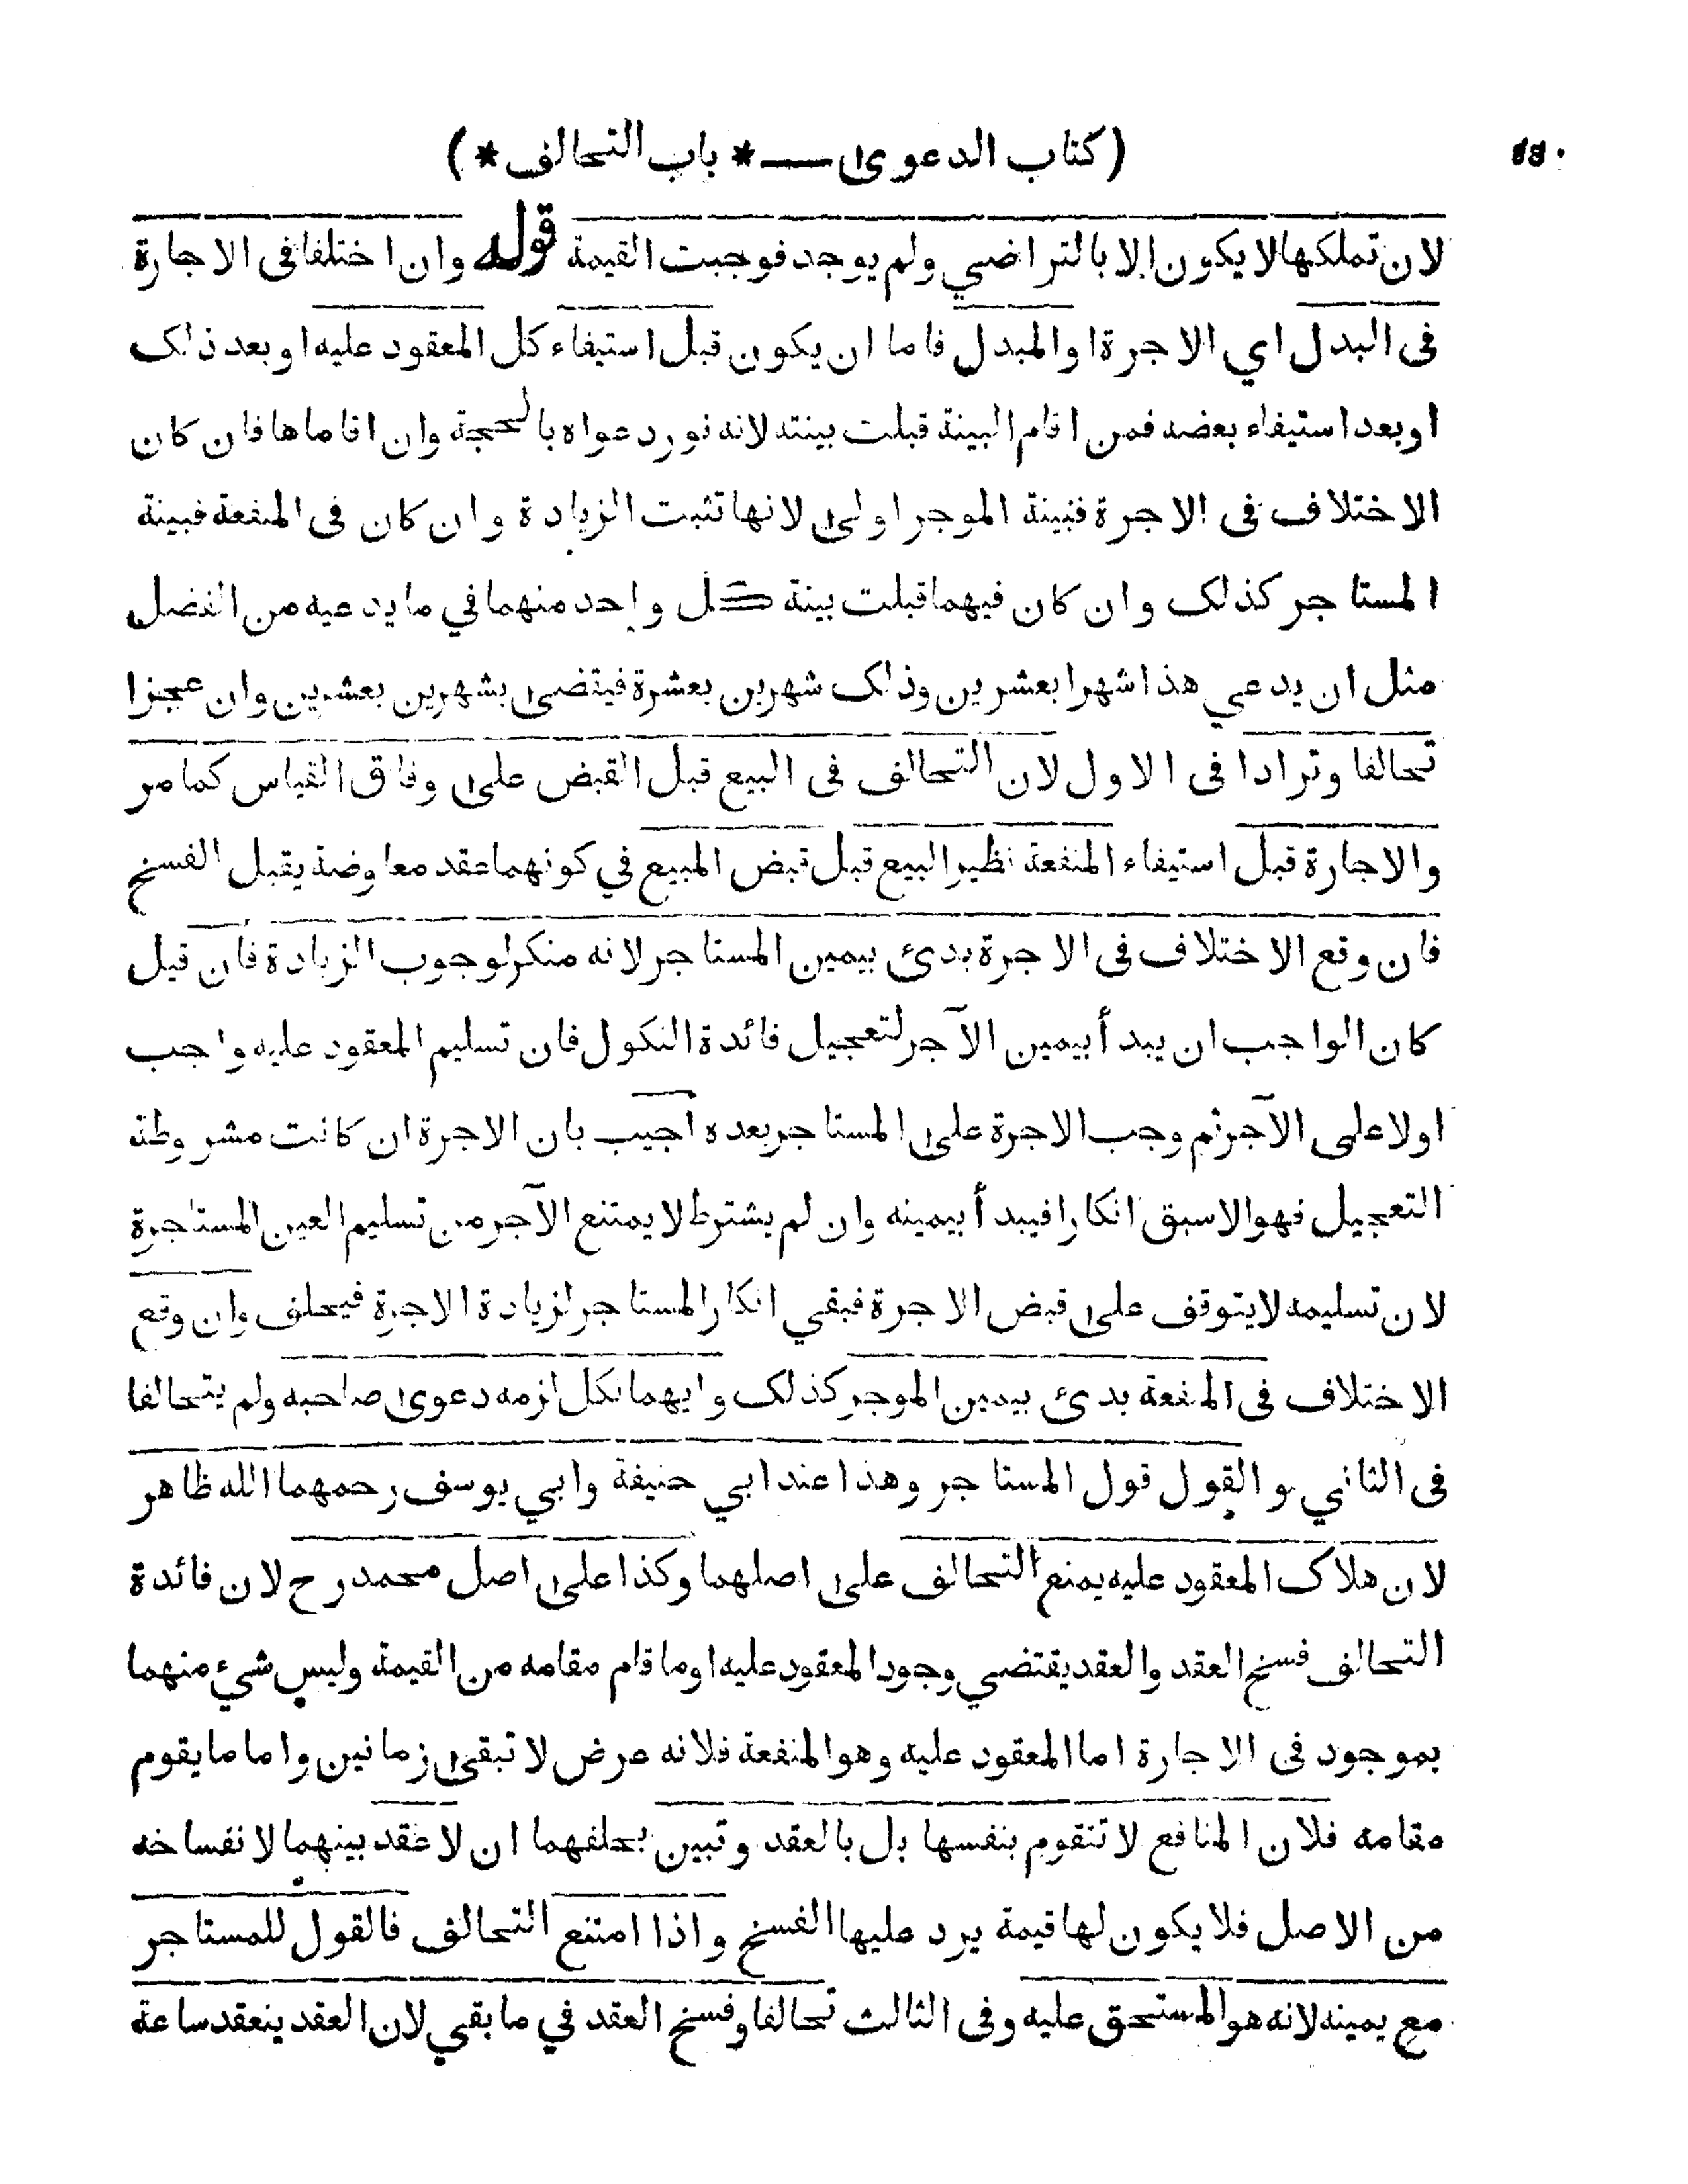 (كتاب الدعوى — * باب التحالف *)
لان تملكها لا يكون الا بالتراضي ولم يوجد فوجبت القيمة قوله وان اختلفا في الاجارة
في البدل اي الاجرة او المبدل فاما ان يكون قبل استيفاء كل المعقود عليه او بعد ذلك
او بعد استيفاء بعضه فمن اقام البينة قبلت بينته لانه نور دعواه بالحجة وان اقاماها فان كان
الاختلاف في الاجرة فبينة الموجر اولى لانها تثبت الزيادة وان كان في المنفعة فبينة
المستاجر كذلك وان كان فيهما قبلت بينة كل واحد منهما في ما يدعيه من الفضل
مثل ان يدعي هذا شهرا بعشرين وذلك شهرين بعشرة فيقضى بشهرين بعشرين وان عجزا
تحالفا وترادا في الاول لان التحالف في البيع قبل القبض على وفاق القياس كما مر
والاجارة قبل استيفاء المنفعة نظير البيع قبل قبض المبيع في كونهما عقد معاوضة يقبل الفسخ
فان وقع الاختلاف في الاجرة بدئ بيمين المستاجر لانه منكر لوجوب الزيادة فان قيل
كان الواجب ان يبدأ بيمين الآجر لتعجيل فائدة النكول فان تسليم المعقود عليه واجب
اولا على الآجر ثم وجب الاجرة على المستاجر بعده اجيب بان الاجرة ان كانت مشروطة
التعجيل فهو الاسبق انكارا فيبدأ بيمينه وان لم يشترط لا يمتنع الآجر من تسليم العين المستاجرة
لان تسليمه لا يتوقف على قبض الاجرة فبقي انكار المستاجر لزيادة الاجرة فيحلف وان وقع
الاختلاف في المنفعة بدئ بيمين الموجر كذلك وايهما نكل لزمه دعوى صاحبه ولم يتحالفا
في الثاني و القول قول المستاجر وهذا عند ابي حنيفة وابي يوسف رحمهما الله ظاهر
لان هلاك المعقود عليه يمنع التحالف على اصلهما وكذا على اصل محمد رح لان فائدة
التحالف فسخ العقد والعقد يقتضي وجود المعقود عليه او ما قام مقامه من القيمة وليس شيء منهما
بموجود في الاجارة اما المعقود عليه وهو المنفعة فلانه عرض لا تبقى زمانين واما ما يقوم
مقامه فلان المنافع لا تتقوم بنفسها بل بالعقد وتبين بحلفهما ان لا عقد بينهما لانفساخه
من الاصل فلا يكون لها قيمة يرد عليها الفسخ واذا امتنع التحالف فالقول للمستاجر
مع يمينه لانه هو المستحق عليه وفي الثالث تحالفا وفسخ العقد في ما بقي لان العقد ينعقد ساعة